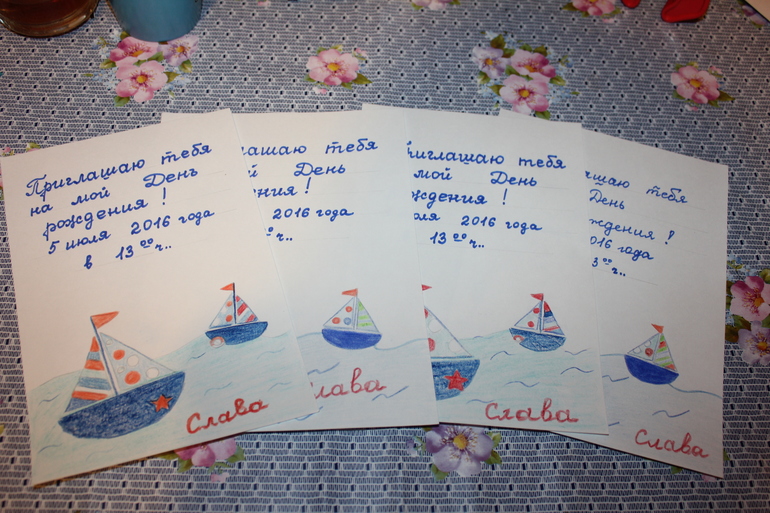 Приглашаю тебя
на мой День
рождения!
5 июля 2016 года
в 13 00 ч..
Слава
глашаю тебя
й День
ения!
2016 года
ч..
Слава
иглашаю тебя
мой День
рождения!
ля 2016 года
13 00 ч..
Слава
ашаю тебя
День
ждения!
016 года
3 00 ч..
Слава